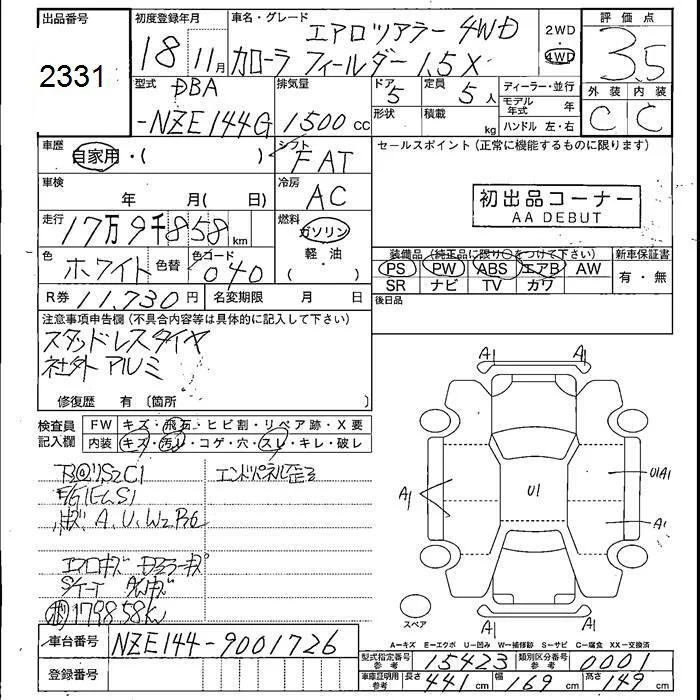 出品番号
2331
初度登録年月
18 11月
車名・グレード
エアロツアラー 4WD
カローラ フィールダー 1.5X
2WD
・
4WD
評価点
3.5
外装 内装
C C
型式
DBA
-NZE144G
排気量
1500 cc
ドア
5
形状
定員
5人
積載
kg
ディーラー・並行
モデル年式 年
ハンドル 左・右
車歴
自家用・( )
シフト
FAT
車検
年 月( 日)
冷房
AC
走行
17万9千858 km
燃料
ガソリン
軽・油
・( )
色
ホワイト
色替
色コード
040
R券 11.730円
名変期限 月 日
セールスポイント(正常に機能するものに限ります)
初出品コーナー
AA DEBUT
装備品(純正品に限り○をつけて下さい)
PS PW ABS エアB AW
SR ナビ TV カワ
新車保証書
有・無
後日品
注意事項申告欄(不具合内容等は具体的に記入して下さい)
スタッドレスタイヤ
社外アルミ
修復歴 有 〔箇所 〕
検査員記入欄
FW キズ・飛石・ヒビ割・リペア跡・X要
内装 キズ・汚レ・コゲ・穴・スレ・キレ・破レ
エンドパネル歪ミ
A.U.W2
エアロキズ ドアミラーキズ
AWキズ
179858km
A1 A1
A1
U1
U1A1
A1
A1 A1
スペア
A-キズ E-エクボ U-凹み W-補修跡 S-サビ C-腐食 XX-交換済
車台番号 NZE144-9001726
登録番号
型式指定番号 参考 15423
類別区分番号 参考 0001
車庫証明用 参考 長さ 441cm 幅 169cm 高さ 149cm